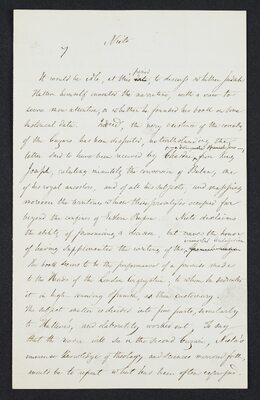 7
Nieto
It would be idle, at this period, to discuss whether Judah
Hallevi himself invented the narrative, with a view to
secure more attention, or whether he founded his book on some
historical data. Indeed, the very existence of the country
of the Cuzars has been disputed, notwithstanding the
letter said to have been received by Chasdai from King
Joseph, relating minutely the conversion of Bulan, one
of his royal ancestors, and of all his subjects, and mapping
moreover the territories which those proselytes occupied far
beyond the confines of Eastern Europe. Nieto disclaims
the ability of pronouncing a decision, but craves the honor
of having supplemented the writing of the
The book seems to be the performance of a promise made
to the of the London Congregation, to whom he dedicates
it in high sounding Spanish, as then customary.
The subject matter is divided into five parts, similarly
to Hallevi's, and elaborately worked out. To say
that the author will see in the second Cuzari, Nieto's
immense knowledge of theology and sciences married full,
would be to repeat what has been often expressed.